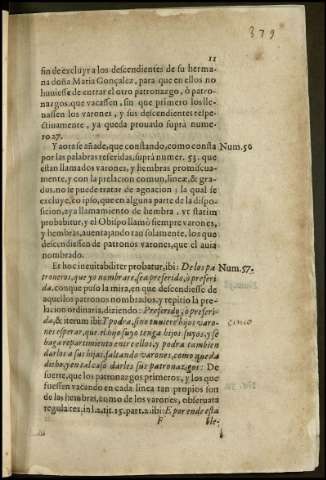 379
11
sin de excluyr a los descendientes de su herma-
na doña Maria Gonçalez, para que en ellos no
huuiesse de entrar el otro patronazgo, ò patro-
nazgos, que vacassen, sin que primero los lle-
uassen los varones, y sus descendientes respe-
ctiuamente, ya queda prouado suprà nume-
ro 27.
Y aora se añade, que constando, como consta Num. 56
por las palabras referidas, suprà numer. 53. que
estan llamados varones, y hembras promiscua-
mente, y con la prelacion comun, linea, & gra-
dus, no se puede tratar de agnacion; la qual se
excluye, eo ipso, que en alguna parte de la dispo-
sicion, aya llamamiento de hembra, vt statim
probabitur, y el Obispo llamò siempre varones,
y hembras, auentajando tan solamente, los que
descendiessen de patronos varones, que el auia
nombrado.
Et hoc ineuitabiliter probatur, ibi: De los pa Num. 57.
troneros, que yo nombrare, sea preferido, ò preferi-
da, con que puso la mira, en que descendiesse de
aquellos patronos nombrados, y repitio la pre-
lacion ordinaria, diziendo: Preferido, ò preferi-
da, & iterum ibi: Y podrá, si no tuuiere hijos varo-
nes esperar, que el hijo suyo tenga hijos suyos, y se
haga repartimiento entre ellos, y podra tambien
darlos a sus hijas, faltando varones, como queda
dicho, y en tal caso darles sus patronazgos: De
suerte, que los patronazgos primeros, y los que
fuessen vacando en cada linea tan propios son
de las hembras, como de los varones, obseruata
regula tex. in l. 2. tit. 15. part. 2. ibi: E por ende esta
F ble-